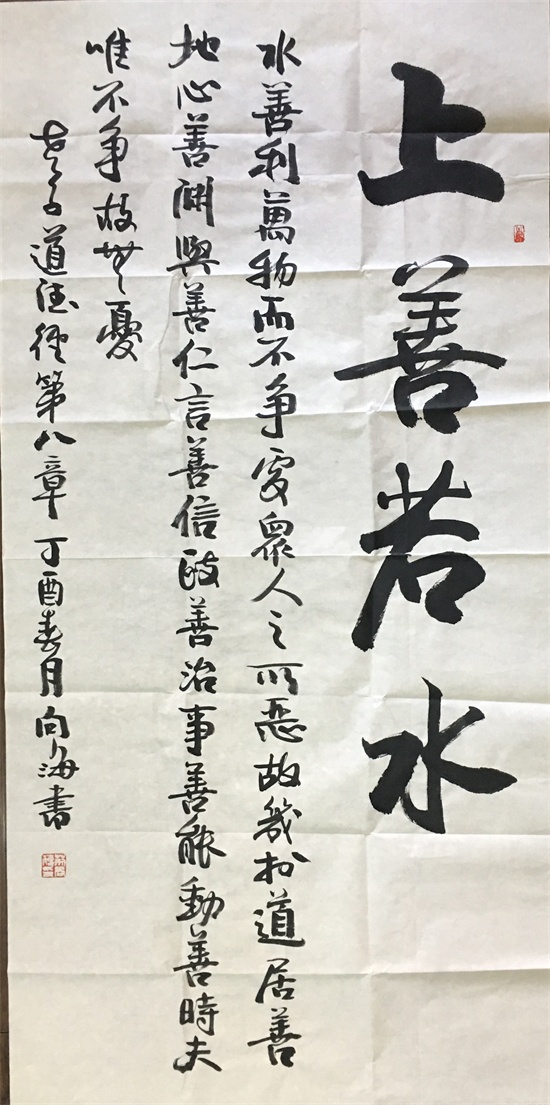 上善若水
水善利萬物而不争處衆人之所惡故幾於道居善
地心善渊與善仁言善信政善治事善能動善時夫
唯不争故無憂
老子道德經第八章丁酉春月向海書